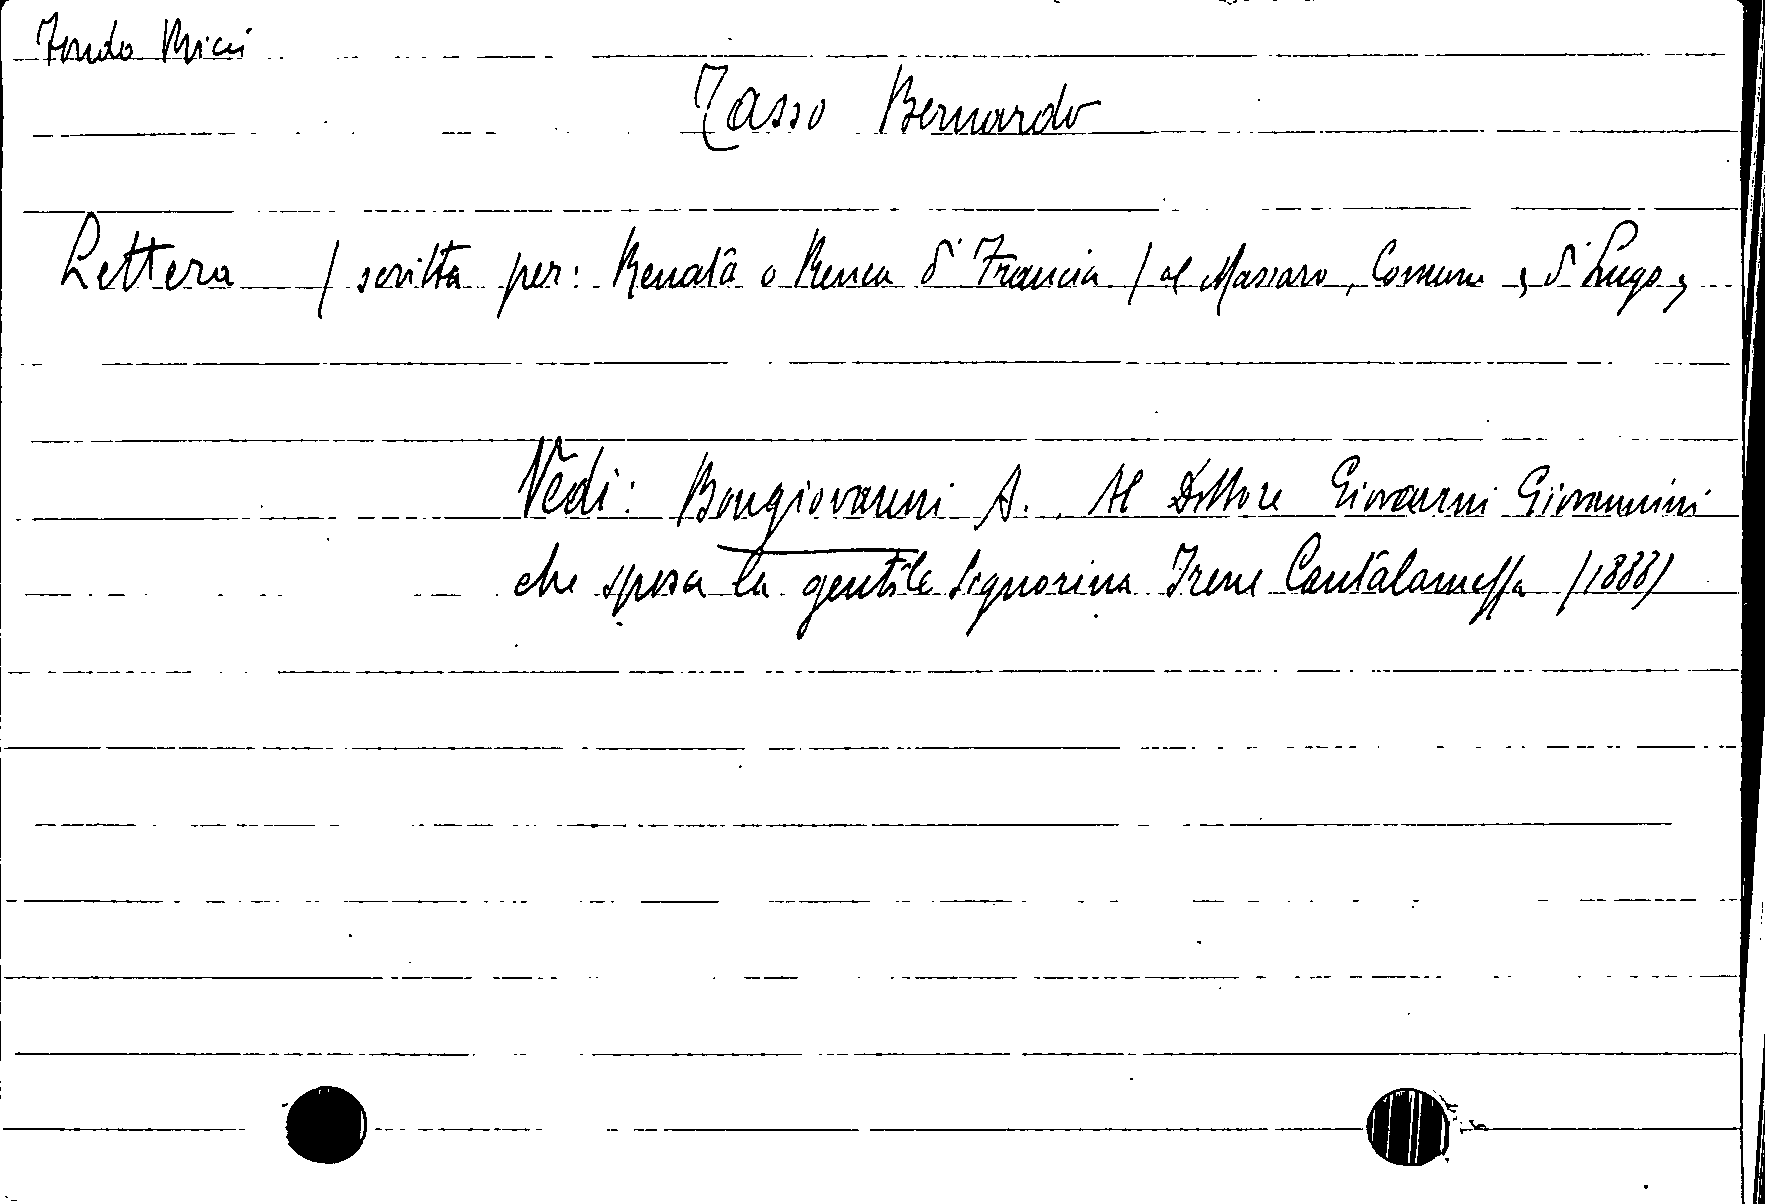 Fondo Ricci
Tasso Bernardo
Lettera (scritta per: Renata o Renea di Francia) al Massaro, Comune, di Lugo,
Vedi: Bongiovanni A. Al Dottore Giovanni Giovannini
che sposa la gentile Signorina Irene Cantalamessa (1888)